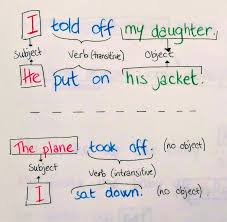 I told off my daughter.
Subject Verb (transitive) Object
He put on his jacket.
The plane took off. (no object)
Subject Verb (intransitive)
I sat down. (no object)